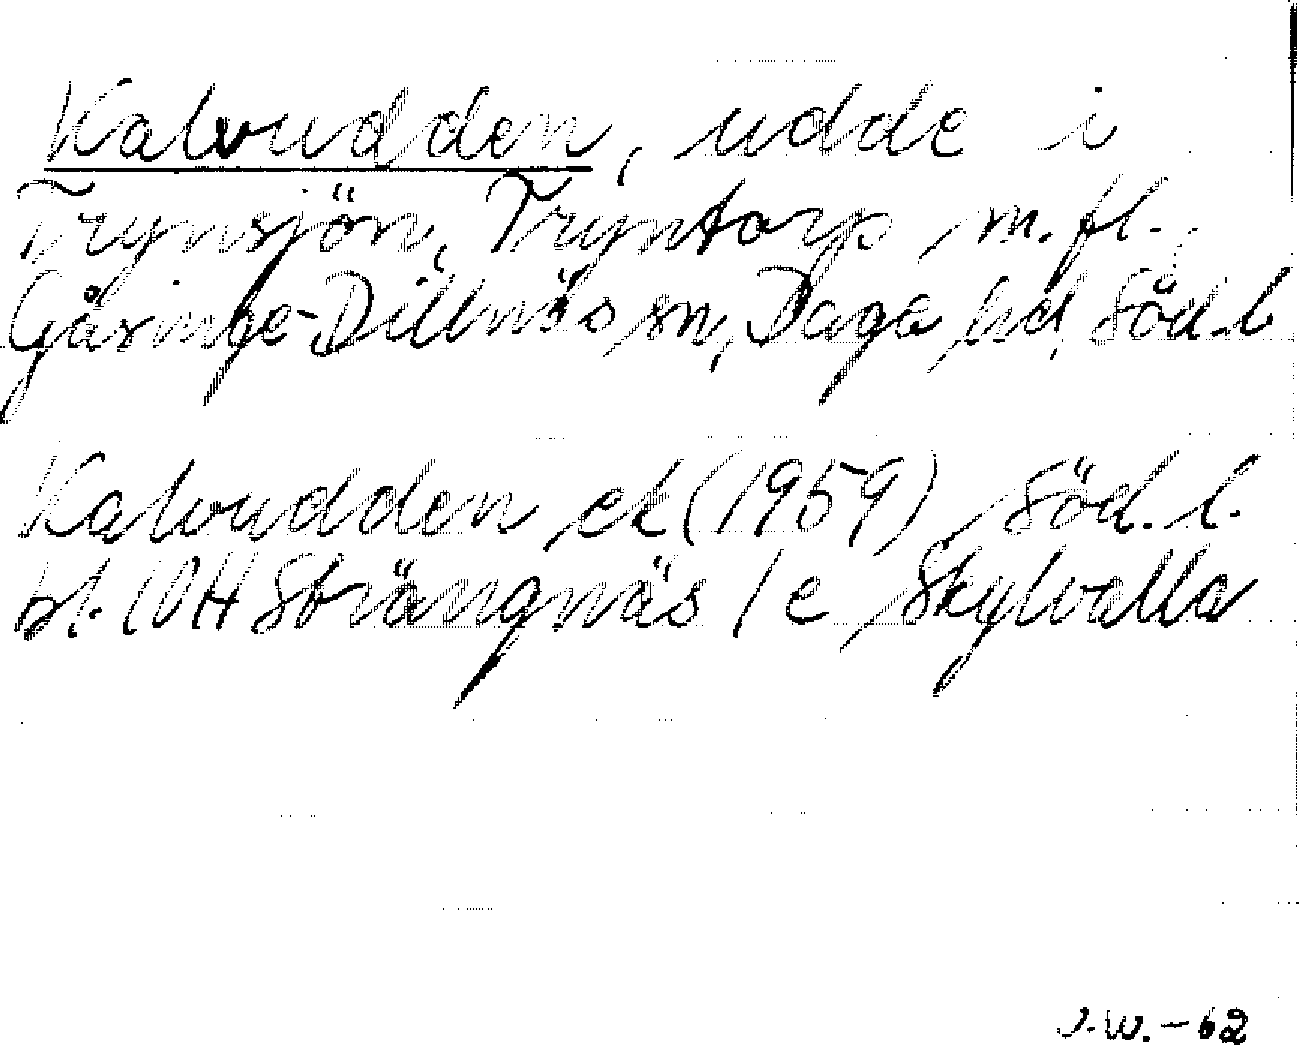 Kalvudden, udde i
Trynsjön, Tryntorp m.fl.
Gåsinge-Dillnäs sn, Daga hd, Söd.l
Kalvudden ek (1959) Söd. l.
bl. 10H Strängnäs 1e Skylvalla
J.W.-62